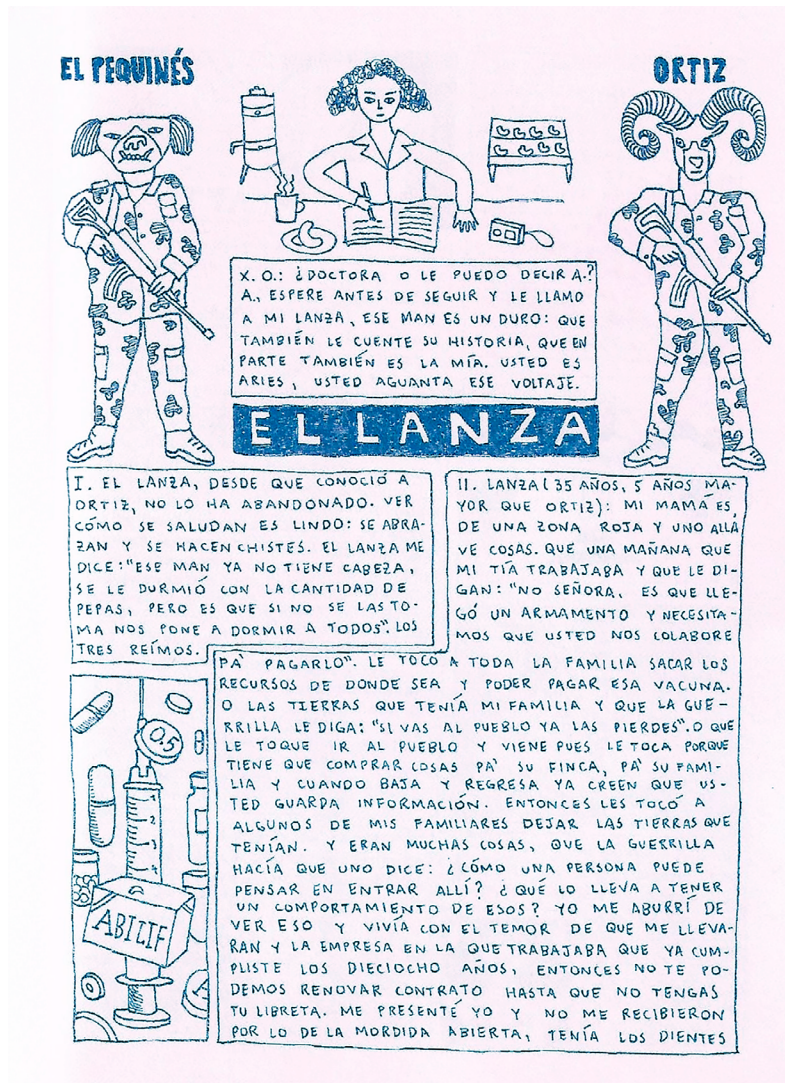 EL PEQUINÉS
ORTIZ
X. O.: ¿DOCTORA O LE PUEDO DECIR A.?
A., ESPERE ANTES DE SEGUIR Y LE LLAMO
A MI LANZA, ESE MAN ES UN DURO: QUE
TAMBIÉN LE CUENTE SU HISTORIA, QUE EN
PARTE TAMBIÉN ES LA MÍA. USTED ES
ARIES, USTED AGUANTA ESE VOLTAJE.
EL LANZA
I. EL LANZA, DESDE QUE CONOCIÓ A
ORTIZ, NO LO HA ABANDONADO. VER
CÓMO SE SALUDAN ES LINDO: SE ABRA-
ZAN Y SE HACEN CHISTES. EL LANZA ME
DICE: "ESE MAN YA NO TIENE CABEZA,
SE LE DURMIÓ CON LA CANTIDAD DE
PEPAS, PERO ES QUE SI NO SE LAS TO-
MA NOS PONE A DORMIR A TODOS". LOS
TRES REÍMOS.
II. LANZA (35 AÑOS, 5 AÑOS MA-
YOR QUE ORTIZ): MI MAMÁ ES,
DE UNA ZONA ROJA Y UNO ALLÁ
VE COSAS. QUE UNA MAÑANA QUE
MI TÍA TRABAJABA Y QUE LE DI-
GAN: "NO SEÑORA, ES QUE LLE-
GÓ UN ARMAMENTO Y NECESITA-
MOS QUE USTED NOS COLABORE
PA' PAGARLO". LE TOCÓ A TODA LA FAMILIA SACAR LOS
RECURSOS DE DONDE SEA Y PODER PAGAR ESA VACUNA.
O LAS TIERRAS QUE TENÍA MI FAMILIA Y QUE LA GUE-
RRILLA LE DIGA: "SI VAS AL PUEBLO YA LAS PIERDES". O QUE
LE TOQUE IR AL PUEBLO Y VIENE PUES LE TOCA PORQUE
TIENE QUE COMPRAR COSAS PA' SU FINCA, PA' SU FAMI-
LIA Y CUANDO BAJA Y REGRESA YA CREEN QUE US-
TED GUARDA INFORMACIÓN. ENTONCES LES TOCÓ A
ALGUNOS DE MIS FAMILIARES DEJAR LAS TIERRAS QUE
TENÍAN. Y ERAN MUCHAS COSAS, QUE LA GUERRILLA
HACÍA QUE UNO DICE: ¿CÓMO UNA PERSONA PUEDE
PENSAR EN ENTRAR ALLÍ? ¿QUÉ LO LLEVA A TENER
UN COMPORTAMIENTO DE ESOS? YO ME ABURRÍ DE
VER ESO Y VIVÍA CON EL TEMOR DE QUE ME LLEVA-
RAN Y LA EMPRESA EN LA QUE TRABAJABA QUE YA CUM-
PLISTE LOS DIECIOCHO AÑOS, ENTONCES NO TE PO-
DEMOS RENOVAR CONTRATO HASTA QUE NO TENGAS
TU LIBRETA. ME PRESENTÉ YO Y NO ME RECIBIERON
POR LO DE LA MORDIDA ABIERTA, TENÍA LOS DIENTES
0.5
1
2
3
ABILIF
A